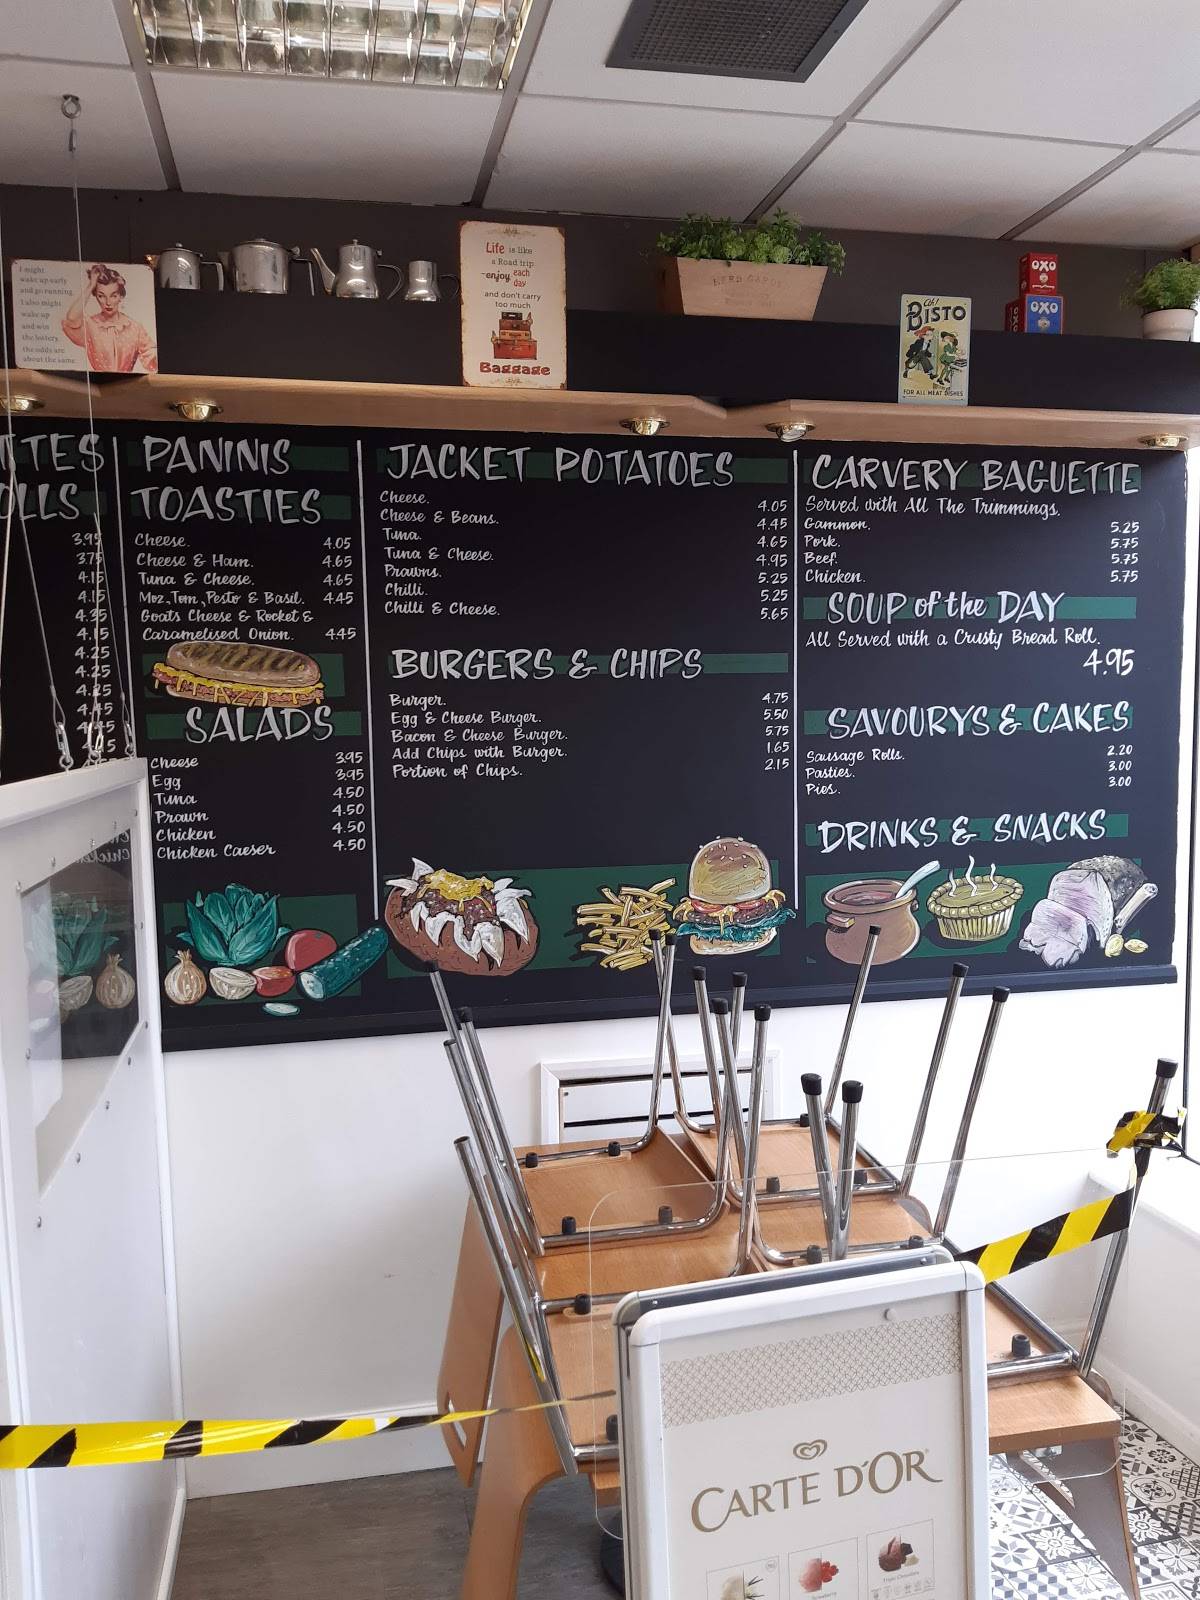 I might
wake up early
and go running.
I also might
wake up
and win
the lottery.
the odds are
about the same.
Life is like
a Road trip
-enjoy each
day
and don't carry
too much
Baggage
Ah!
BISTO
FOR ALL MEAT DISHES
OXO
OXO
TTES
OLLS
3.95
3.75
4.15
4.15
4.35
4.15
4.25
4.25
4.25
4.45
PANINIS
TOASTIES
Cheese. 4.05
Cheese & Ham. 4.65
Tuna & Cheese. 4.65
Moz, Tom, Pesto & Basil. 4.45
Goats Cheese & Rocket &
Caramelised Onion. 4.45
SALADS
Cheese 3.95
Egg 3.95
Tuna 4.50
Prawn 4.50
Chicken 4.50
Chicken Caeser 4.50
JACKET POTATOES
Cheese. 4.05
Cheese & Beans. 4.45
Tuna. 4.65
Tuna & Cheese. 4.95
Prawns. 5.25
Chilli. 5.25
Chilli & Cheese. 5.65
BURGERS & CHIPS
Burger. 4.75
Egg & Cheese Burger. 5.50
Bacon & Cheese Burger. 5.75
Add Chips with Burger. 1.65
Portion of Chips. 2.15
CARVERY BAGUETTE
Served with All The Trimmings.
Gammon. 5.25
Pork. 5.75
Beef. 5.75
Chicken. 5.75
SOUP of the DAY
All Served with a Crusty Bread Roll.
4.95
SAVOURYS & CAKES
Sausage Rolls. 2.20
Pasties. 3.00
Pies. 3.00
DRINKS & SNACKS
CARTE D'OR